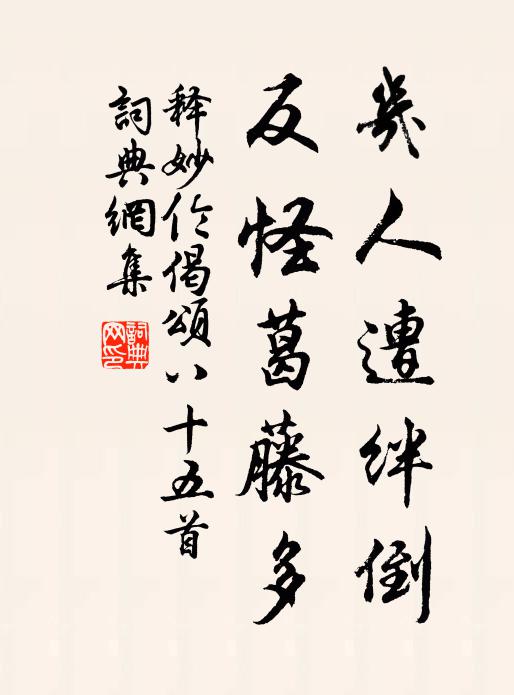 幾人遭絆倒
反怪葛藤多
释妙伦偈頌八十五首
詞典網集
詞典网印